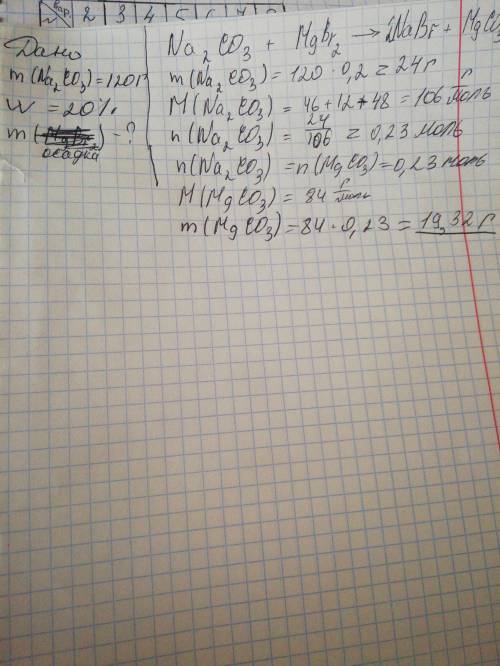 вар. 2 3 4 5 6 7 8
Дано
m(Na₂CO₃)=120г
W = 20%
m( ) - ?
осадка
Na₂CO₃ + MgBr₂ → 2NaBr + MgCO₃
m(Na₂CO₃) = 120 · 0,2 = 24 г
M(Na₂CO₃) = 46 + 12 + 48 = 106 г/моль
n(Na₂CO₃) = 24/106 = 0,23 моль
n(Na₂CO₃) = n(MgCO₃) = 0,23 моль
M(MgCO₃) = 84 г/моль
m(MgCO₃) = 84 · 0,23 = 19,32 г